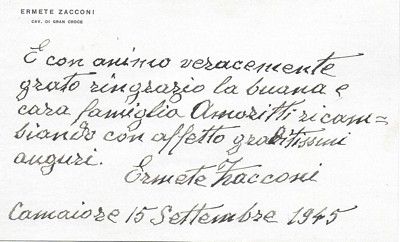 ERMETE ZACCONI
CAV. DI GRAN CROCE
E con animo veracemente
grato ringrazio la buona e
cara famiglia Amoritti ricam=
biando con affetto graditissimi
auguri.
Ermete Zacconi
Camaiore 15 Settembre 1945